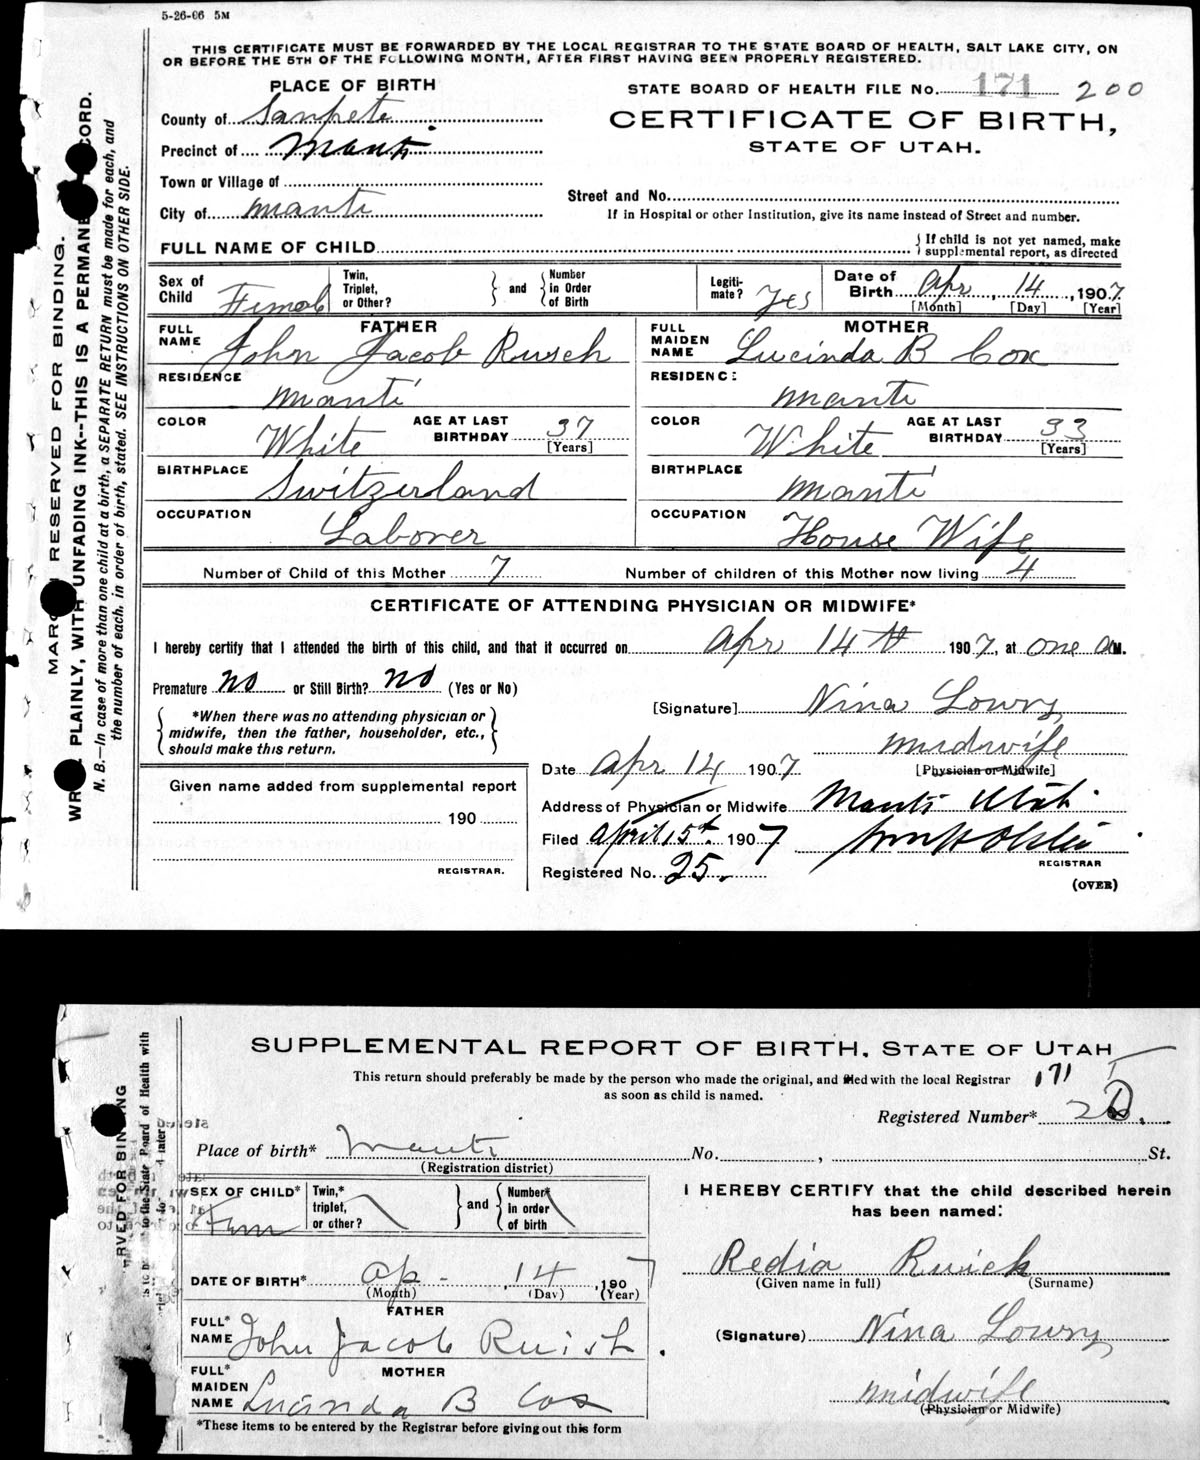 5-26-06 5M
THIS CERTIFICATE MUST BE FORWARDED BY THE LOCAL REGISTRAR TO THE STATE BOARD OF HEALTH, SALT LAKE CITY, ON
OR BEFORE THE 5TH OF THE FOLLOWING MONTH, AFTER FIRST HAVING BEEN PROPERLY REGISTERED.
PLACE OF BIRTH
County of Sanpete
Precinct of Manti
Town or Village of
City of Manti
STATE BOARD OF HEALTH FILE No. 171 200
CERTIFICATE OF BIRTH,
STATE OF UTAH.
Street and No.
If in Hospital or other Institution, give its name instead of Street and number.
FULL NAME OF CHILD
If child is not yet named, make
supplemental report, as directed
Sex of Child Femal
Twin, Triplet, or Other? and Number in Order of Birth
Legitimate? Yes
Date of Birth Apr 14, 1907
[Month] [Day] [Year]
FATHER
FULL NAME John Jacob Rusch
RESIDENCE Manti
COLOR White AGE AT LAST BIRTHDAY 37 [Years]
BIRTHPLACE Switzerland
OCCUPATION Laborer
MOTHER
FULL MAIDEN NAME Lucinda B Cox
RESIDENCE Manti
COLOR White AGE AT LAST BIRTHDAY 33 [Years]
BIRTHPLACE Manti
OCCUPATION House Wife
Number of Child of this Mother 7 Number of children of this Mother now living 4
CERTIFICATE OF ATTENDING PHYSICIAN OR MIDWIFE*
I hereby certify that I attended the birth of this child, and that it occurred on Apr 14th 1907, at one a M.
Premature no or Still Birth? no (Yes or No)
*When there was no attending physician or
midwife, then the father, householder, etc.,
should make this return.
[Signature] Nina Lowry
Midwife
[Physician or Midwife]
Date Apr 14 1907
Given name added from supplemental report
190
REGISTRAR.
Address of Physician or Midwife Manti Utah
Filed April 15th 1907
REGISTRAR
Registered No. 25.
(OVER)
RESERVED FOR BINDING.
PLAINLY, WITH UNFADING INK--THIS IS A PERMANE CORD.
N. B.—In case of more than one child at a birth, a SEPARATE RETURN must be made for each, and
the number of each, in order of birth, stated. SEE INSTRUCTIONS ON OTHER SIDE.
SUPPLEMENTAL REPORT OF BIRTH, STATE OF UTAH
This return should preferably be made by the person who made the original, and filed with the local Registrar
as soon as child is named.
171
Registered Number*
Place of birth* Manti No. , St.
(Registration district)
SEX OF CHILD* Fem
Twin,* triplet, or other? and Number* in order of birth
DATE OF BIRTH* Ap - 14, 1907
(Month) (Day) (Year)
FATHER
FULL* NAME John Jacob Ruish.
MOTHER
FULL* MAIDEN NAME Lucinda B Cox
*These items to be entered by the Registrar before giving out this form
I HEREBY CERTIFY that the child described herein
has been named:
Redia Rusch
(Given name in full) (Surname)
(Signature) Nina Lowry
Midwife
(Physician or Midwife)
RVED FOR BINDING
to the State Board of Health with